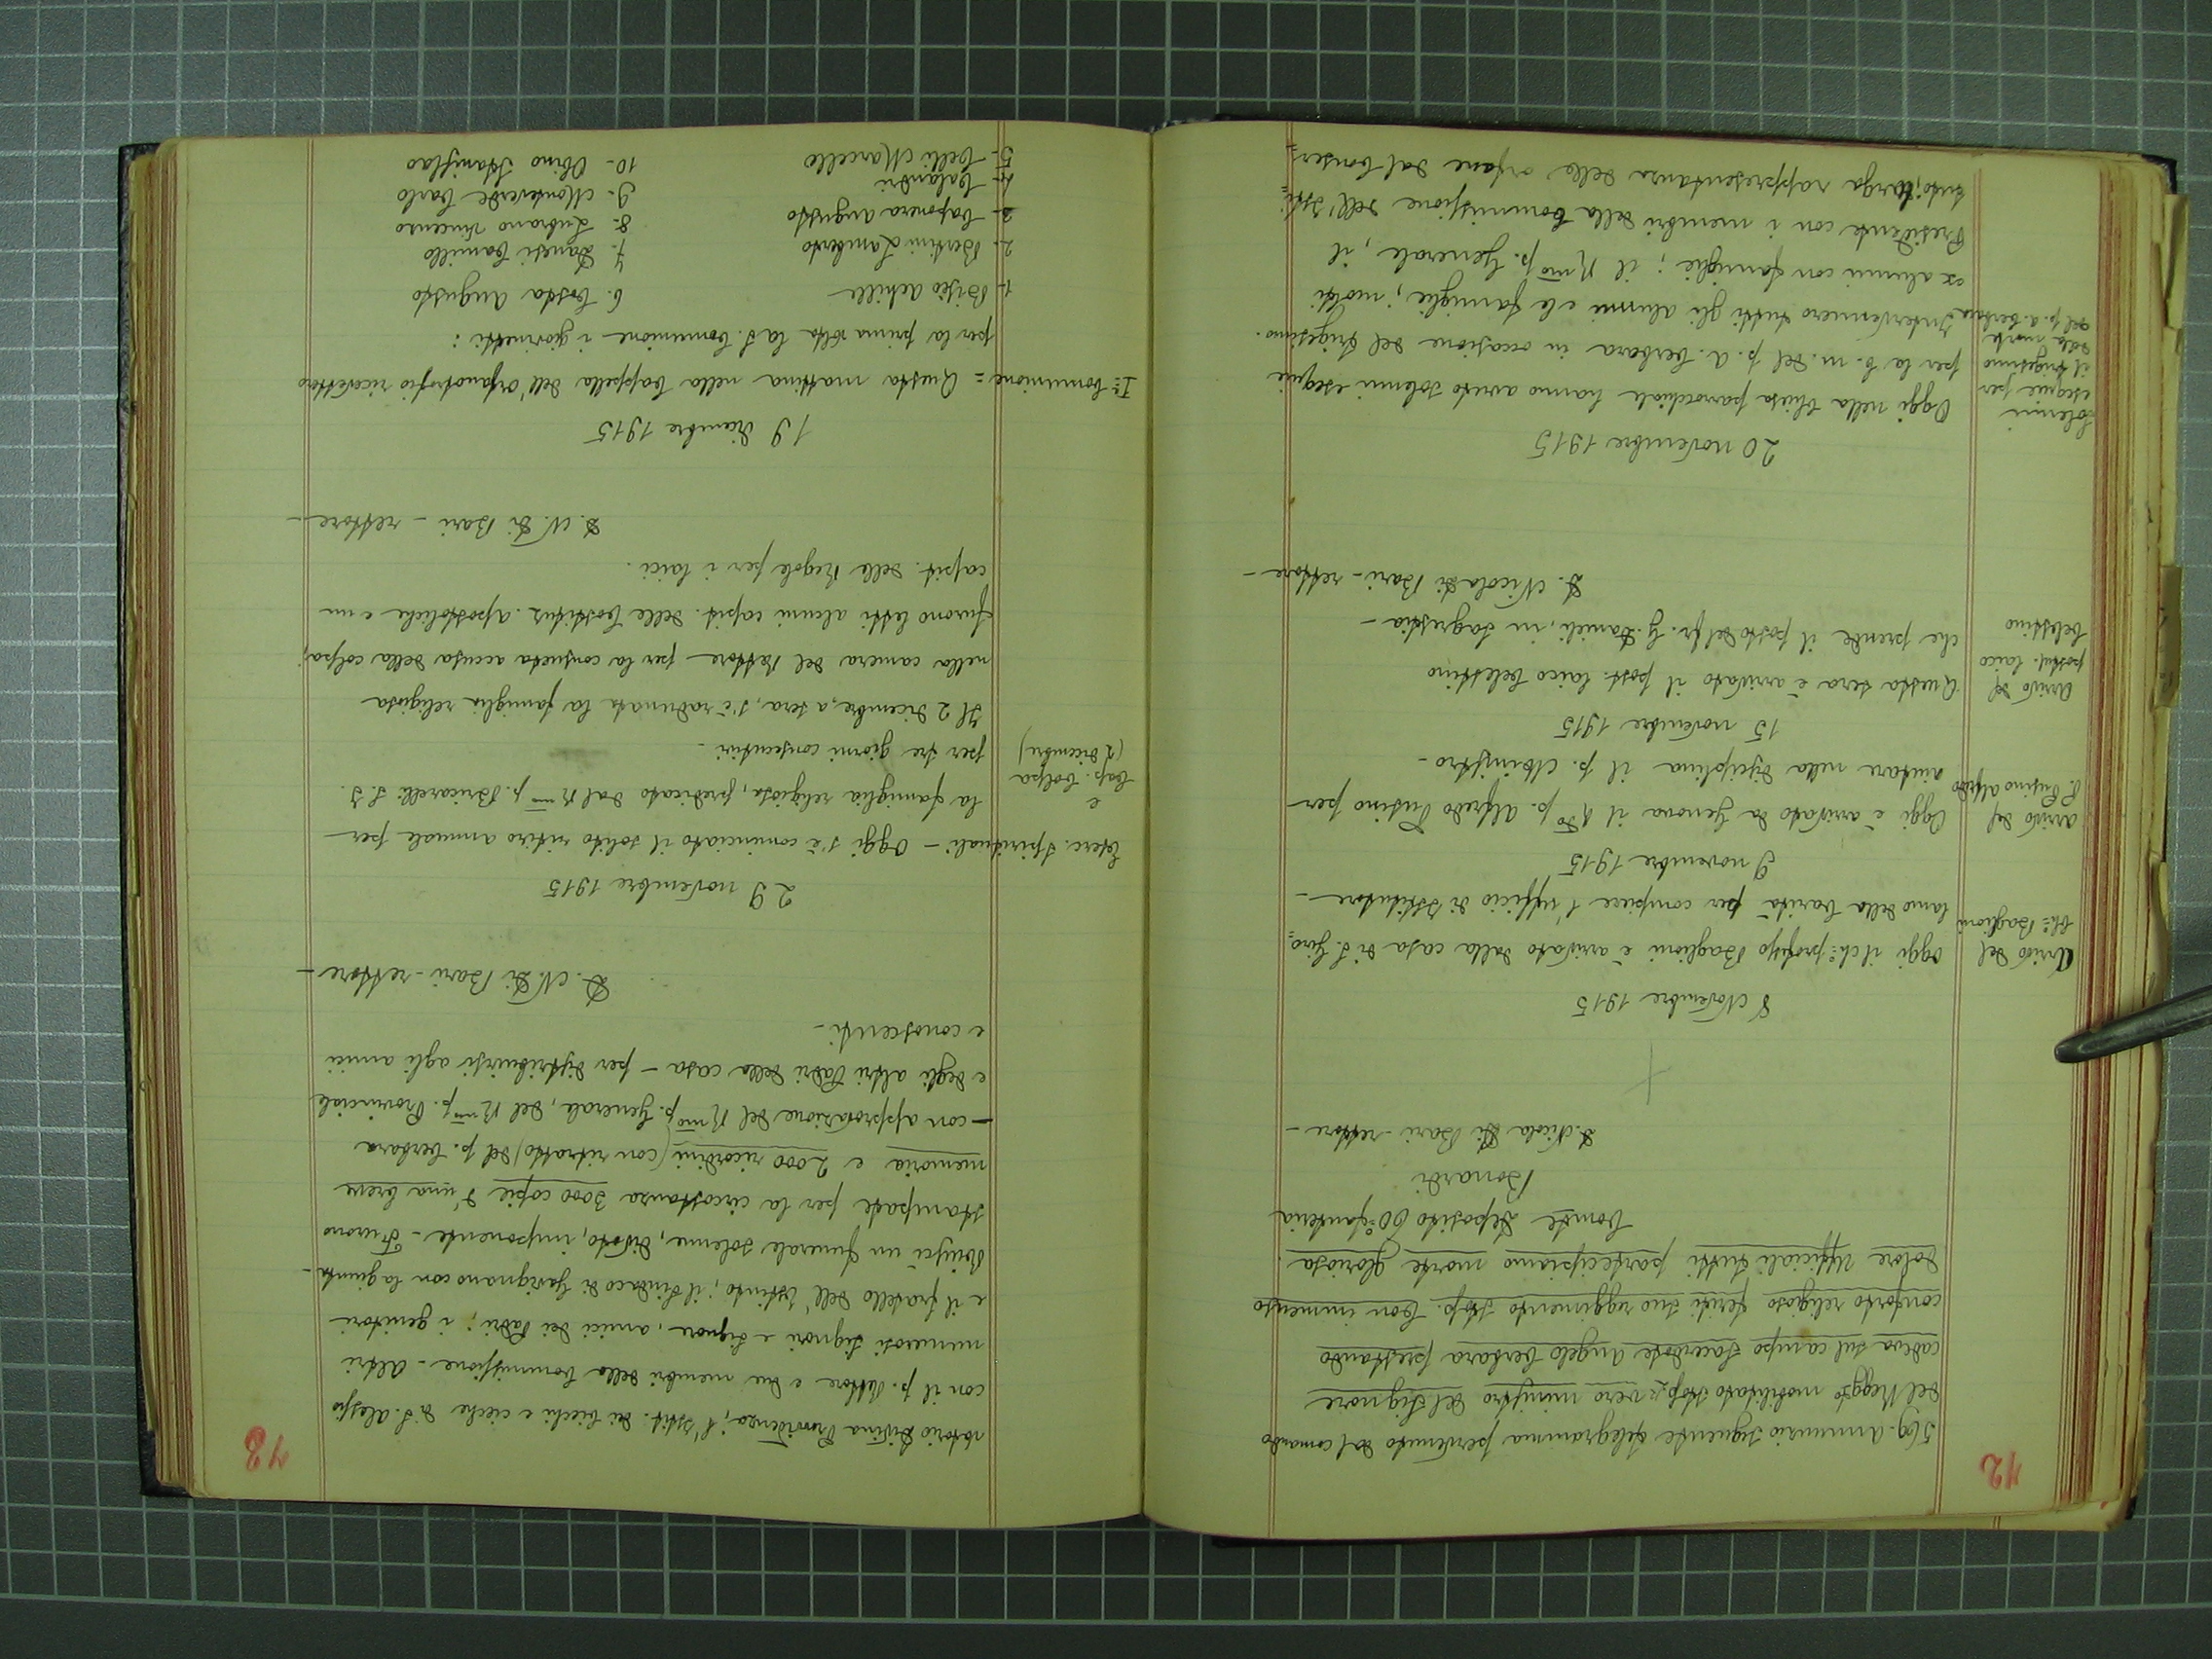 72
569. Annunzio seguente telegramma pervenuto dal comando
del Regg.to mobilitato stop vero ministro del Signore
cadeva sul campo Sacerdote Angelo Cerbara prestando
conforto religioso feriti suo reggimento stop. Con immenso
dolore Ufficiali tutti partecipiamo morte gloriosa.
Com.te Deposito 60° Fanteria
Bonardi
D. Nicola Di Bari - rettore -
8 Novembre 1915
Arrivo del
Ch.co Baglioni
Oggi il ch.co professo Baglioni è arrivato dalla casa di S. Giro=
lamo della Carità per compiere l'ufficio di Istitutore -
9 novembre 1915
Arrivo del
P. Pusino Alfredo
Oggi è arrivato da Genova il R.do p. Alfredo Pusino per
aiutare nella disciplina il p. Ministro -
15 novembre 1915
Arrivo del
postul. laico
Celestino
Questa sera è arrivato il post. laico Celestino
che prende il posto del fr. G. Danieli, in sagrestia -
D. Nicola Di Bari - rettore -
20 novembre 1915
Solenni
esequie per
il trigesimo
della morte
del p. A. Cerbara
Oggi nella Chiesa parrocchiale hanno avuto solenni esequie
per la b. m. del p. A. Cerbara in occasione del trigesimo.
Intervennero tutti gli alunni e le famiglie; molti
ex alunni con famiglie; il R.mo p. Generale, il
Presidente con i membri della Commissione dell'Isti=
tuto; larga rappresentanza delle orfane dal Conser=
73
vatorio Divina Provvidenza; l'Istit. dei ciechi e cieche di S. Alessio
con il p. Rettore e due membri della Commissione - Altri
numerosi Signori e Signore, amici dei Padri; i genitori
e il fratello dell'Estinto; il Sindaco di Gavignano con la giunta -
Riuscì un funerale solenne, divoto, imponente - Furono
stampate per la circostanza 3000 copie d'una breve
memoria e 2000 ricordini (con ritratto) del p. Cerbara
- con approvazione del R.mo p. Generale, del R.mo p. Provinciale
e degli altri Padri della casa - per distribuirsi agli amici
e conoscenti -
D. N. Di Bari - rettore -
29 novembre 1915
Eserc. Spirituali -
e
Cap. Colpa
(2 dicembre)
Oggi s'è cominciato il solito ritiro annuale per
la famiglia religiosa, predicato dal R.mo p. Bricarelli S. J.
per tre giorni consecutivi -
Il 2 dicembre, a sera, s'è radunata la famiglia religiosa
nella camera del Rettore per la consueta accusa della colpa;
furono letti alcuni capit. delle Costituz. apostoliche e un
capit. delle Regole per i laici.
D. N. Di Bari - rettore -
19 dicembre 1915
Iª Comunione =
Questa mattina nella Cappella dell'Orfanotrofio ricevettero
per la prima volta la S. Comunione i giovinetti:
1- Biseo Achille
6. Costa Augusto
2- Bertini Lamberto
7. Danesi Camillo
3- Caponera Augusto
8. Lubrano Vincenzo
4- Calandri
9. Monteverde Carlo
5- Celli Marcello
10- Obino Stanislao